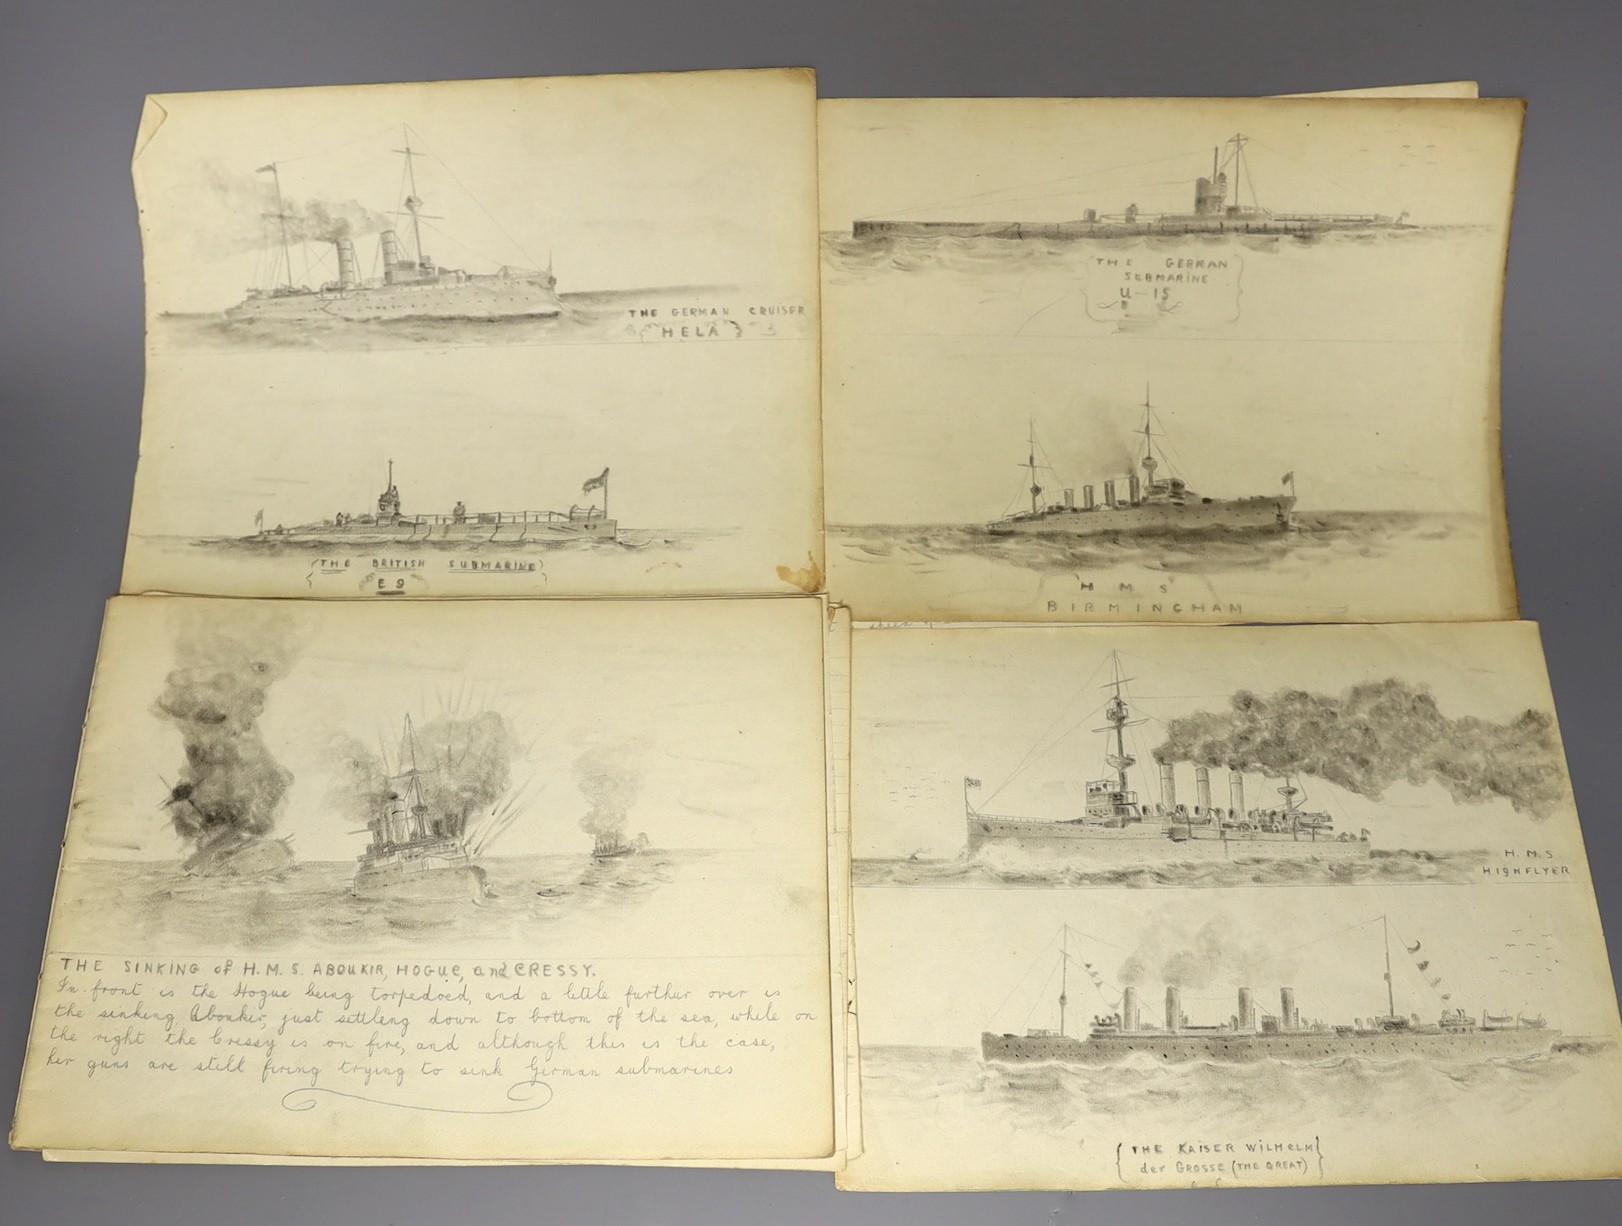 THE GERMAN CRUISER
HELA
THE BRITISH SUBMARINE
E 9
THE GERMAN
SUBMARINE
U-15
H M S
BIRMINGHAM
THE SINKING of H.M.S. ABOUKIR, HOGUE, and CRESSY.
In front is the Hogue being torpedoed, and a little furthur over is
the sinking Aboukir, just settleng down to bottom of the sea, while on
the right the Cressy is on fire, and although this is the case,
her guns are still firing trying to sink German submarines
H.M.S
HIGHFLYER
{THE KAISER WILHELM}
der GROSSE (THE GREAT)